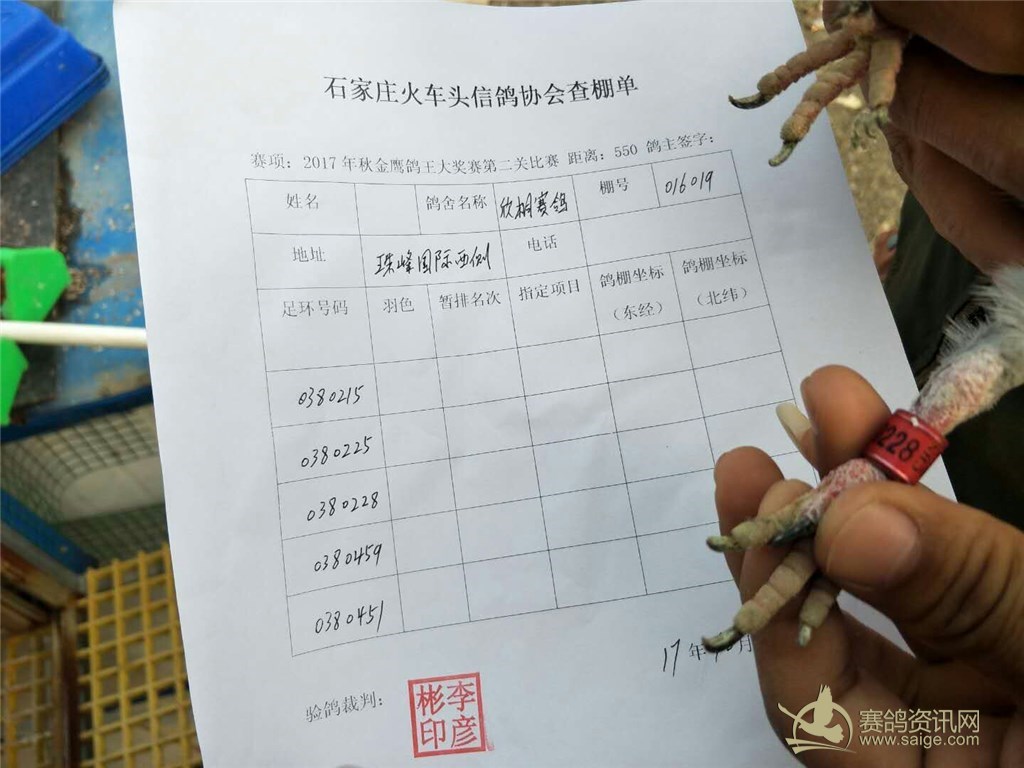 石家庄火车头信鸽协会查棚单
赛项：2017年秋金鹰鸽王大奖赛第二关比赛 距离：550 鸽主签字：
姓名 鸽舍名称 欣桐赛鸽 棚号 016019
地址 珠峰国际西侧 电话
足环号码 羽色 暂排名次 指定项目 鸽棚坐标（东经） 鸽棚坐标（北纬）
0380215
0380225
0380228
0380459
0380451
17年 月
验鸽裁判：
李彦彬印
228
赛鸽资讯网
www.saige.com